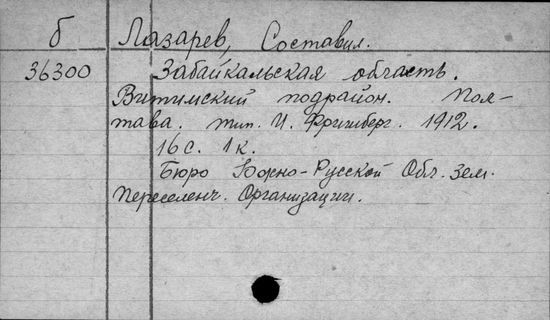 б Лазарев, Составил.
36300 Забайкальская область.
Витимский подрайон. Пол-
тава. тип. И. Фришберг. 1912.
16 с. 1 к.
Бюро Южно-Русской Обл. Зем.
Переселенч. Организации.